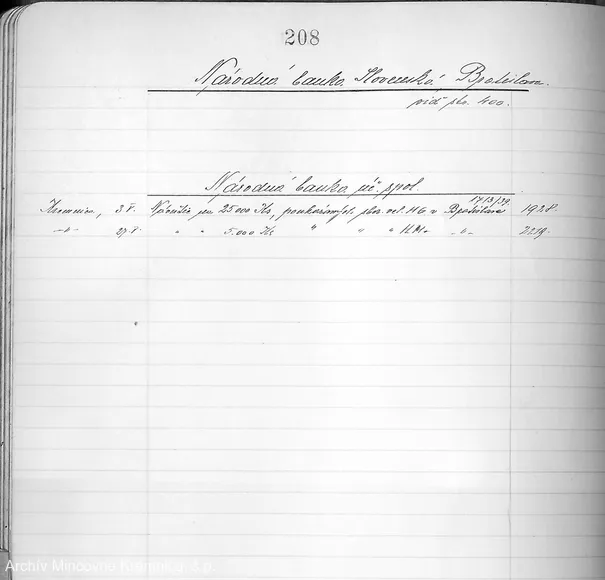 208
Národná banka Slovenská Bratislava.
viď str. 400.
Národná banka úč. spol.
17/3/39.
Kremnica, 3.V. Návštie na 25000 Ks, poukázaných, vel. HG v Bratislave 1928.
-„- 27.V. „ „ 5.000 Ks „ „ „ -„- 2219.
Archív Mincovne Kremnica, š.p.